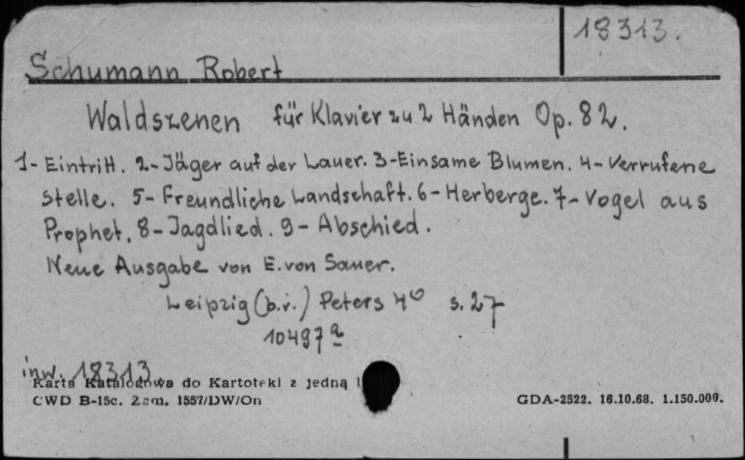 18313.
Schumann Robert
Waldszenen für Klavier zu 2 Händen Op. 82.
1- Eintritt. 2- Jäger auf der Lauer. 3-Einsame Blumen. 4-Verrufene
Stelle. 5- Freundliche Landschaft. 6-Herberge. 7-Vogel aus
Prophet. 8-Jagdlied. 9-Abschied.
Neue Ausgabe von E. von Sauer.
Leipzig (b.r.) Peters 4° s. 27
10497a
inw. 18313
Karta Katalogowa do Kartoteki z jedną
CWD B-15c. Zam. 1557/DW/On
GDA-2522. 16.10.68. 1.150.000.